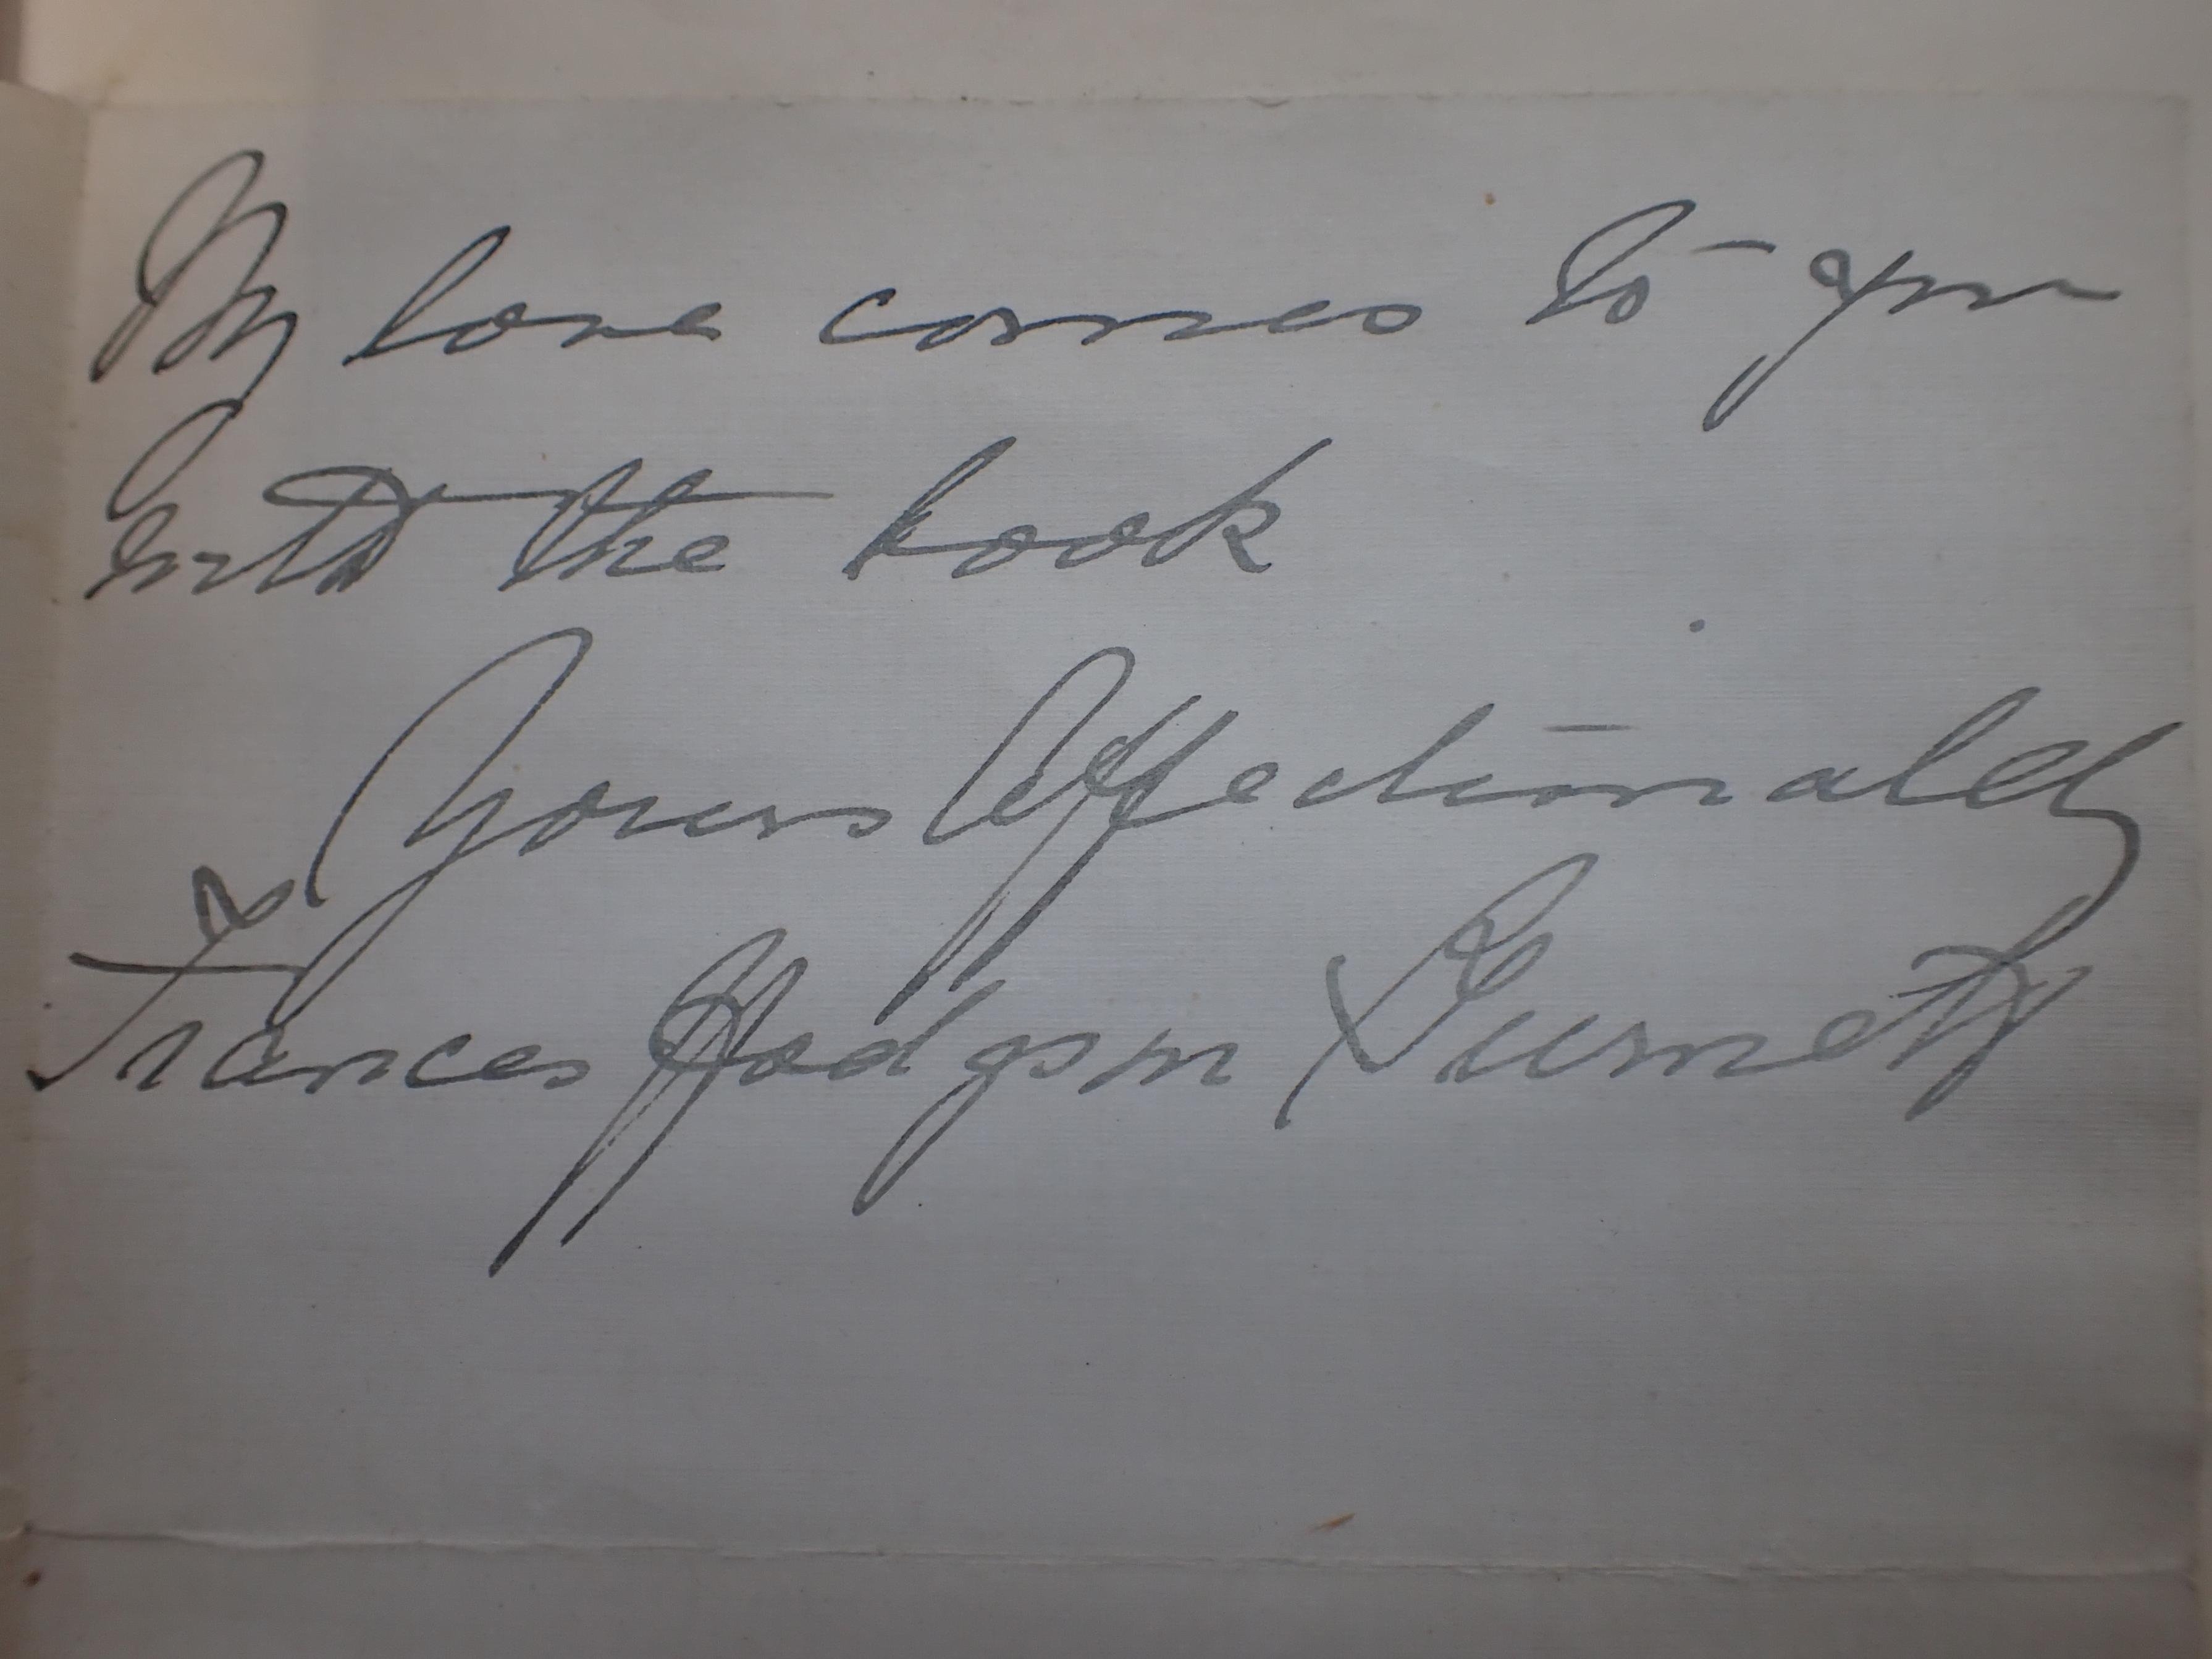 My love comes to you
with the book
Yours Affectionately
Frances Hodgson Burnett